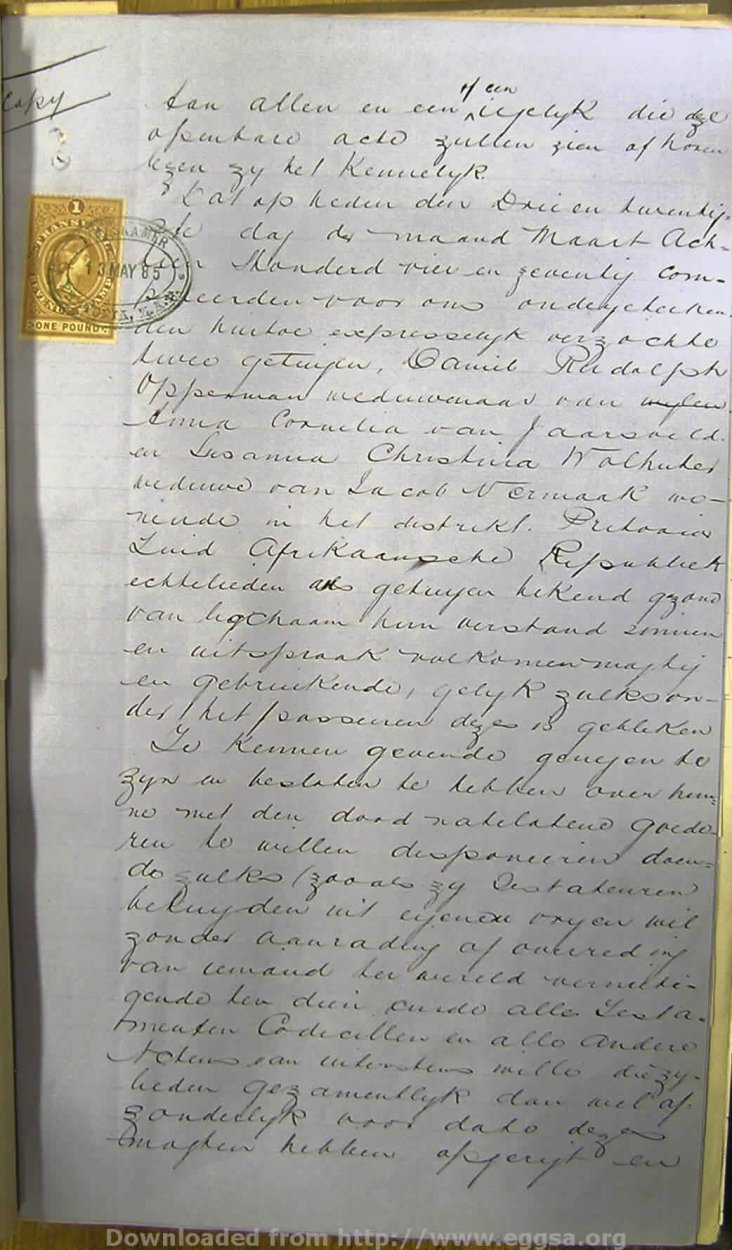 Copy
of een
Aan allen en een iegelyk die deze
openbare acte zullen zien of horen
lezen zy het Kennelyk.
Dat op heden den Drie en twentig-
ste dag der maand Maart Ach-
tien Honderd vier en zeventig com-
pareerden voor ons ondergeteeken-
den hiertoe expresselyk verzochte
twee getuigen, Daniel Rudolph
Opperman weduwenaar van wylen
Anna Cornelia van Jaarsveld
en Susanna Christina Wolhuter
weduwe van Jacob Vermaak wo-
nende in het distrikt Pretoria
Zuid Afrikaansche Republiek
echtelieden als getuigen bekend gezond
van ligchaam hun verstand zinnen
en uitspraak volkomen magtig
en gebruikende, gelyk zulks on-
der het passeren dezes is gebleken
Te Kennen gevende genegen te
zyn en besloten te hebben over hun-
ne met den dood natelatene goede-
ren te willen disponeeren doen-
de zulks (zooals zy Testateuren
betuyden uit eigenen vryen wil
zonder aanrading of overreding
van iemand ter wereld vernieti-
gende ten dien einde alle Testa-
menten Codicillen en alle andere
Actens van uiterstens wille die zy-
lieden gezamentlyk dan wel af-
zonderlyk voor dato dezes
mogten hebben opgerigt en
ONE POUND
1
13 MAY 85
Downloaded from http://www.eggsa.org